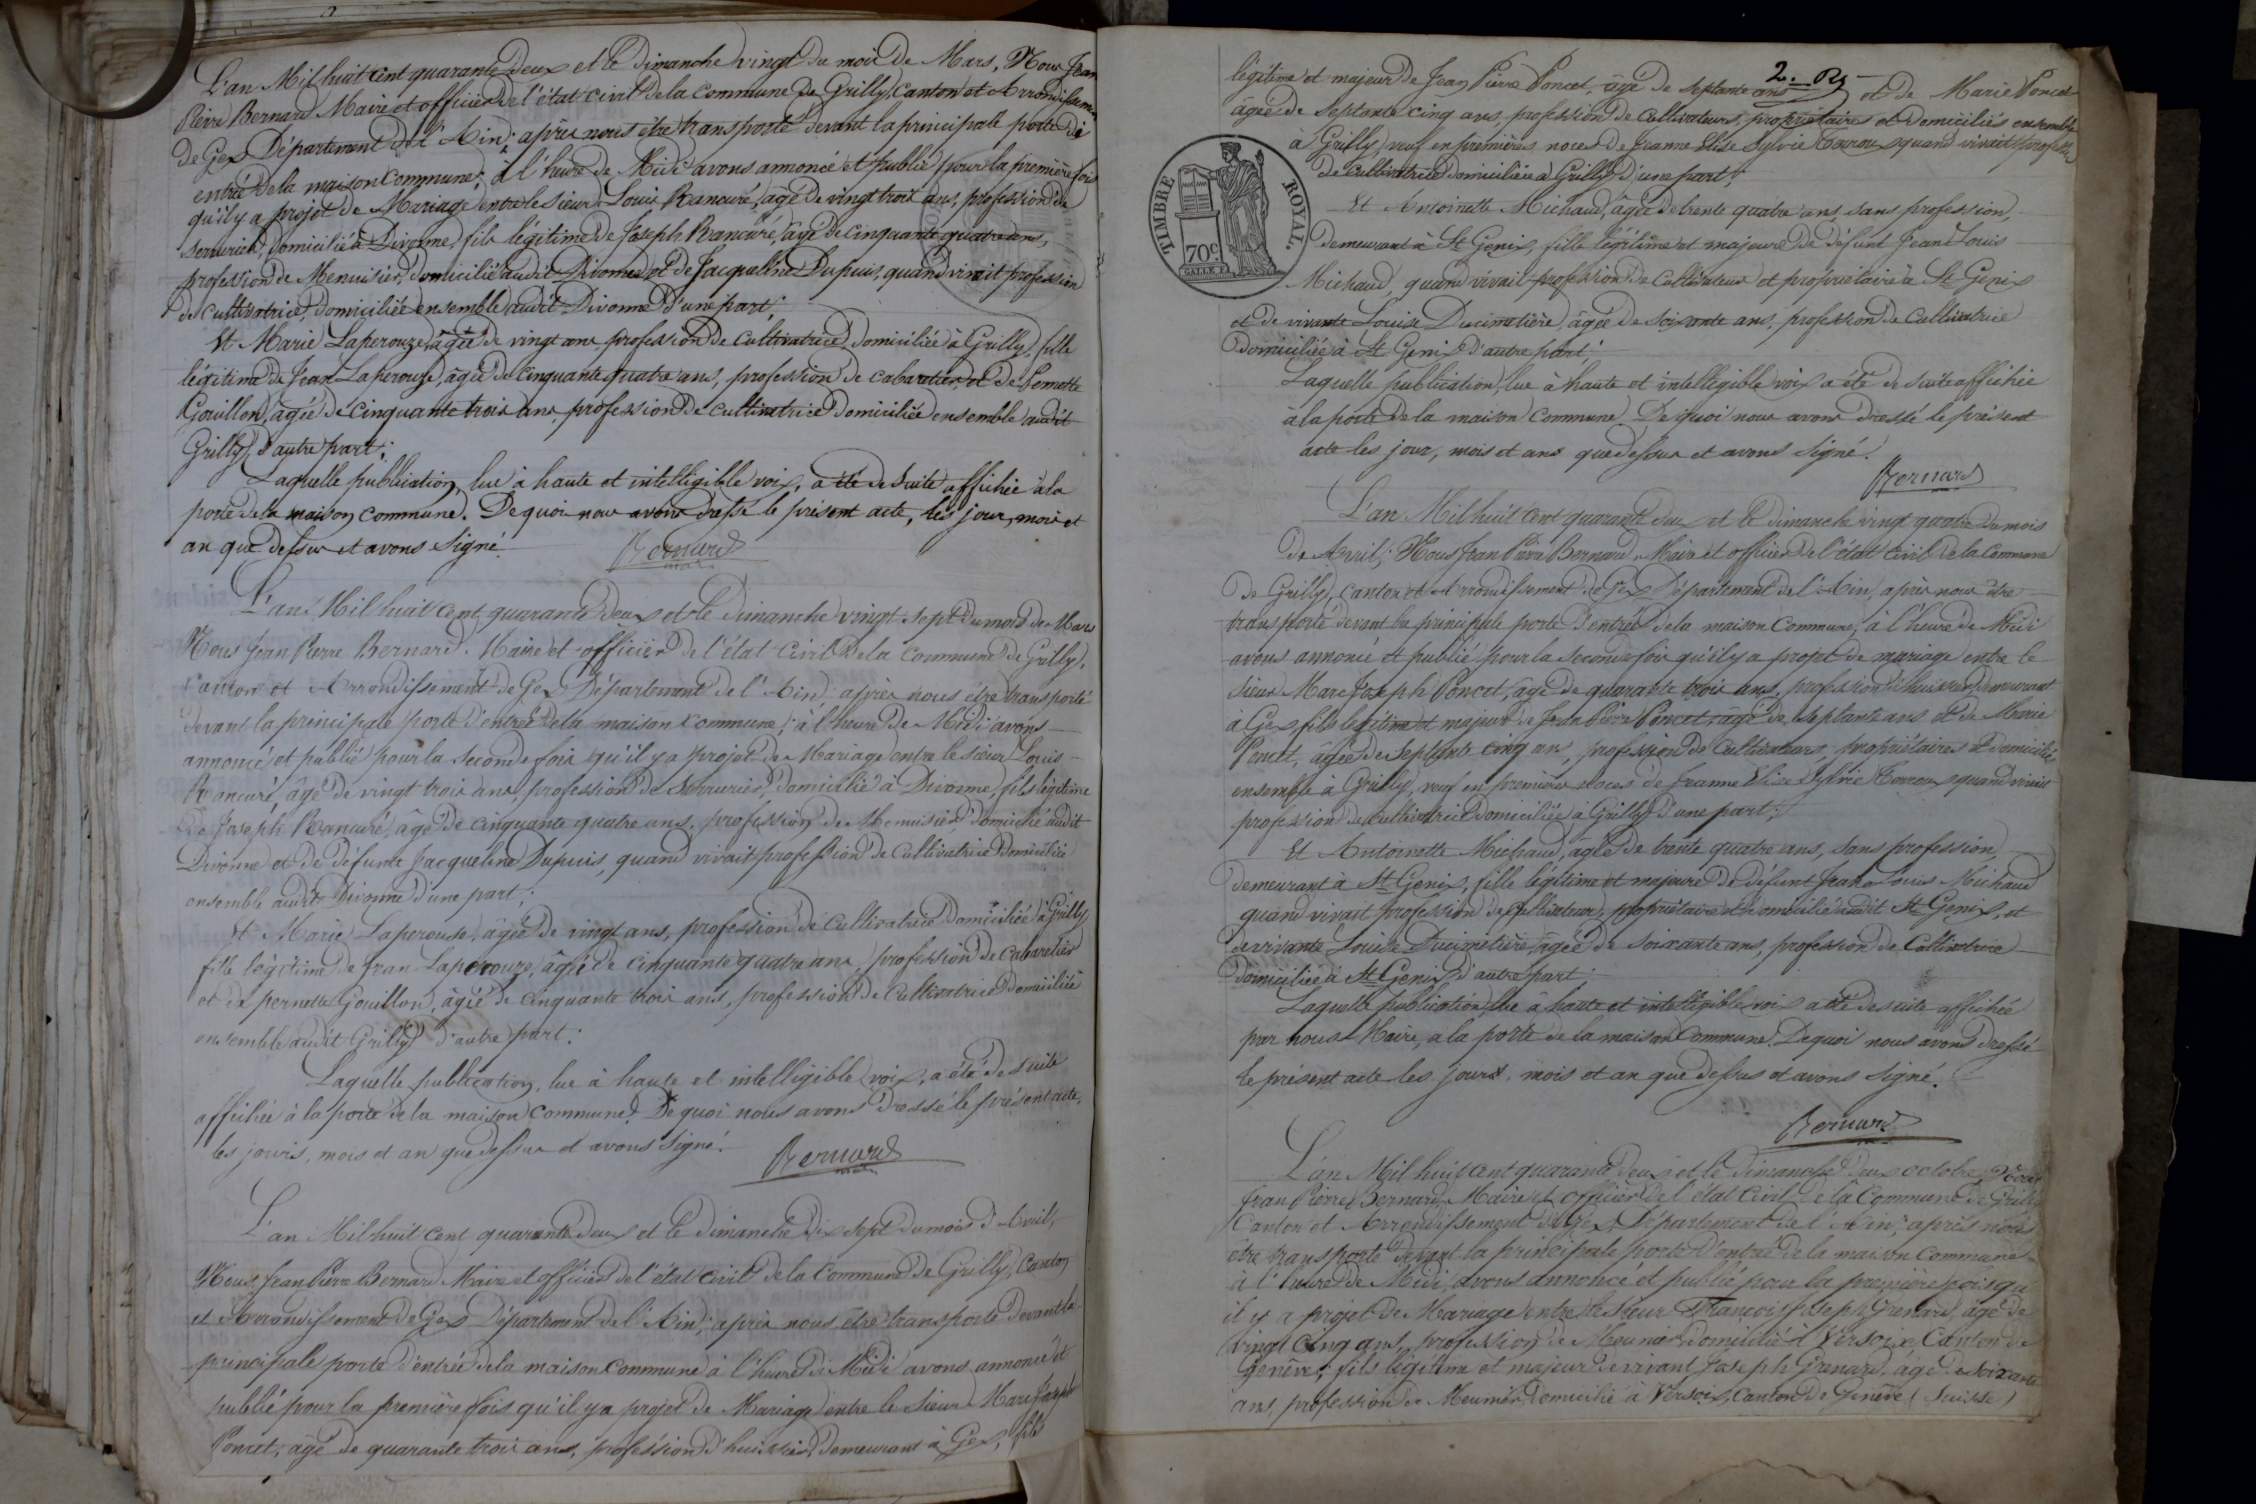 L'an Mil huit cent quarante deux et le Dimanche vingt du mois de Mars, Nous Jean
Pierre Bernard Maire et officier de l'état civil de la commune de Grilly, canton et Arrondissement
de Gex Département de l'Ain; après nous être transporté devant la principale porte de
entrée de la maison commune, à l'heure de Midi avons annoncé et publié pour la première fois
qu'il y a projet de Mariage entre le sieur Louis Rancuré, âgé de vingt trois ans, profession de
serrurier, domicilié à Divonne, fils légitime de Joseph Rancuré, âgé de cinquante quatre ans,
profession de Menuisier, domicilié audit Divonne, et de Jacqueline Dupuis, quand vivait profession
de cultivatrice, domiciliée ensemble audit Divonne d'une part;
Et Marie Laperouze, âgée de vingt ans, profession de cultivatrice, domiciliée à Grilly, fille
légitime de Jean Laperouze, âgé de cinquante quatre ans, profession de cabaretier et de Pernette
Gouillon, âgée de cinquante trois ans, profession de cultivatrice domiciliée ensemble audit
Grilly, d'autre part;
Laquelle publication, lue à haute et intelligible voix, a été de suite affichée à la
porte de la maison commune. De quoi nous avons dressé le présent acte, les jour, mois et
an que dessus et avons signé.
Bernard
L'an Mil huit cent quarante deux et le Dimanche vingt sept du mois de Mars
Nous Jean Pierre Bernard, Maire et officier de l'état civil de la commune de Grilly,
Canton et Arrondissement de Gex Département de l'Ain après nous être transporté
devant la principale porte d'entrée de la maison commune; à l'heure de Midi avons
annoncé et publié pour la seconde fois qu'il y a projet de Mariage entre le sieur Louis
Rancuré, âgé de vingt trois ans, profession de Serrurier, domicilié à Divonne, fils légitime
de Joseph Rancuré, âgé de cinquante quatre ans, profession de Menuisier domicilié audit
Divonne et de défunte Jacqueline Dupuis, quand vivait profession de Cultivatrice domiciliée
ensemble audit Divonne d'une part;
Et Marie Laperouse, âgée de vingt ans, profession de cultivatrice domiciliée à Grilly
fille légitime de Jean Laperouze, âgé de cinquante quatre ans, profession de cabaretier
et de pernette Gouillon, âgée de cinquante trois ans, profession de Cultivatrice domiciliée
ensemble audit Grilly d'autre part:
Laquelle publication, lue à haute et intelligible voix, a été de suite
affichée à la porte de la maison commune. De quoi nous avons dressé le présent acte,
les jours, mois et an que dessus et avons signé.
Bernard
L'an Mil huit cent quarante deux et le dimanche dix sept du mois d'Avril,
Nous Jean Pierre Bernard Maire et officier de l'état civil de la commune de Grilly, Canton
et Arrondissement de Gex Département de l'Ain; après nous être transporté devant la
principale porte d'entrée de la maison commune à l'heure de Midi avons annoncé et
publié pour la première fois qu'il y a projet de Mariage entre le sieur Marc Joseph
Poncet, âgé de quarante trois ans, profession d'huissier, demeurant à Gex, fils
légitime et majeur de Jean Pierre Poncet, âgé de septante ans et de Marie Poncet
âgée de septante cinq ans, profession de Cultivateurs, propriétaires et domiciliés ensemble
à Grilly, veuf en premières noces de Jeanne Elise Sylvie quand vivait profession
de cultivatrice domiciliée à Grilly d'une part;
TIMBRE ROYAL.
70c
Et Antoinette Michaud, âgée de trente quatre ans, sans profession,
demeurant à St Genix, fille légitime et majeure de défunt Jean Louis
Michaud, quand vivait profession de Cultivateur et propriétaire à St Genix
et de vivante Louise Ducimetière, âgée de soixante ans, profession de Cultivatrice
domiciliée à St Genix d'autre part:
Laquelle publication, lue à haute et intelligible voix a été de suite affichée
à la porte de la maison commune. De quoi nous avons dressé le présent
acte les jour, mois et ans que dessus et avons signé.
Bernard
L'an Mil huit cent quarante deux et le dimanche vingt quatre du mois
de Avril, Nous Jean Pierre Bernard, Maire et officier de l'état civil de la Commune
de Grilly, canton et Arrondissement de Gex Département de l'Ain, après nous être
transporté devant la principale porte d'entrée de la maison commune, à l'heure de Midi
avons annoncé et publié pour la seconde fois qu'il y a projet de mariage entre le
sieur Marc Joseph Poncet, âgé de quarante trois ans, profession d'huissier, demeurant
à Gex fils légitime et majeur de Jean Pierre Poncet, âgé de septante ans et de Marie
Poncet, âgée de septante cinq ans, profession de Cultivateurs, propriétaires et domiciliés
ensemble à Grilly, veuf en premières noces de Jeanne Elise Sylvie quand vivait
profession de cultivatrice domiciliée à Grilly d'une part;
Et Antoinette Michaud, âgée de trente quatre ans, sans profession,
demeurant à St Genix, fille légitime et majeure de défunt Jean Louis Michaud
quand vivait profession de Cultivateur, propriétaire domicilié audit St Genix, et
de vivante Louise Ducimetière âgée de soixante ans, profession de Cultivatrice
domiciliée à St Genix d'autre part:
Laquelle publication, lue à haute et intelligible voix a été de suite affichée
par nous Maire, à la porte de la maison commune. De quoi nous avons dressé
le présent acte les jours mois et an que dessus et avons signé.
Bernard
L'an Mil huit cent quarante deux et le dimanche deux octobre, Nous
Jean Pierre Bernard, Maire et officier de l'état civil de la commune de Grilly
Canton et Arrondissement de Gex Département de l'Ain; après nous
être transporté devant la principale porte d'entrée de la maison commune
à l'heure de Midi, avons annoncé et publié pour la première fois qu'
il y a projet de Mariage entre le Sieur François Joseph Grenard, âgé de
vingt cinq ans, profession de Meunier domicilié à Versoix, Canton de
Genêve, fils légitime et majeur de vivant Joseph Grenard, âgé de soixante
ans, profession de Meunier, domicilié à Versoix, Canton de Genêve (Suisse)